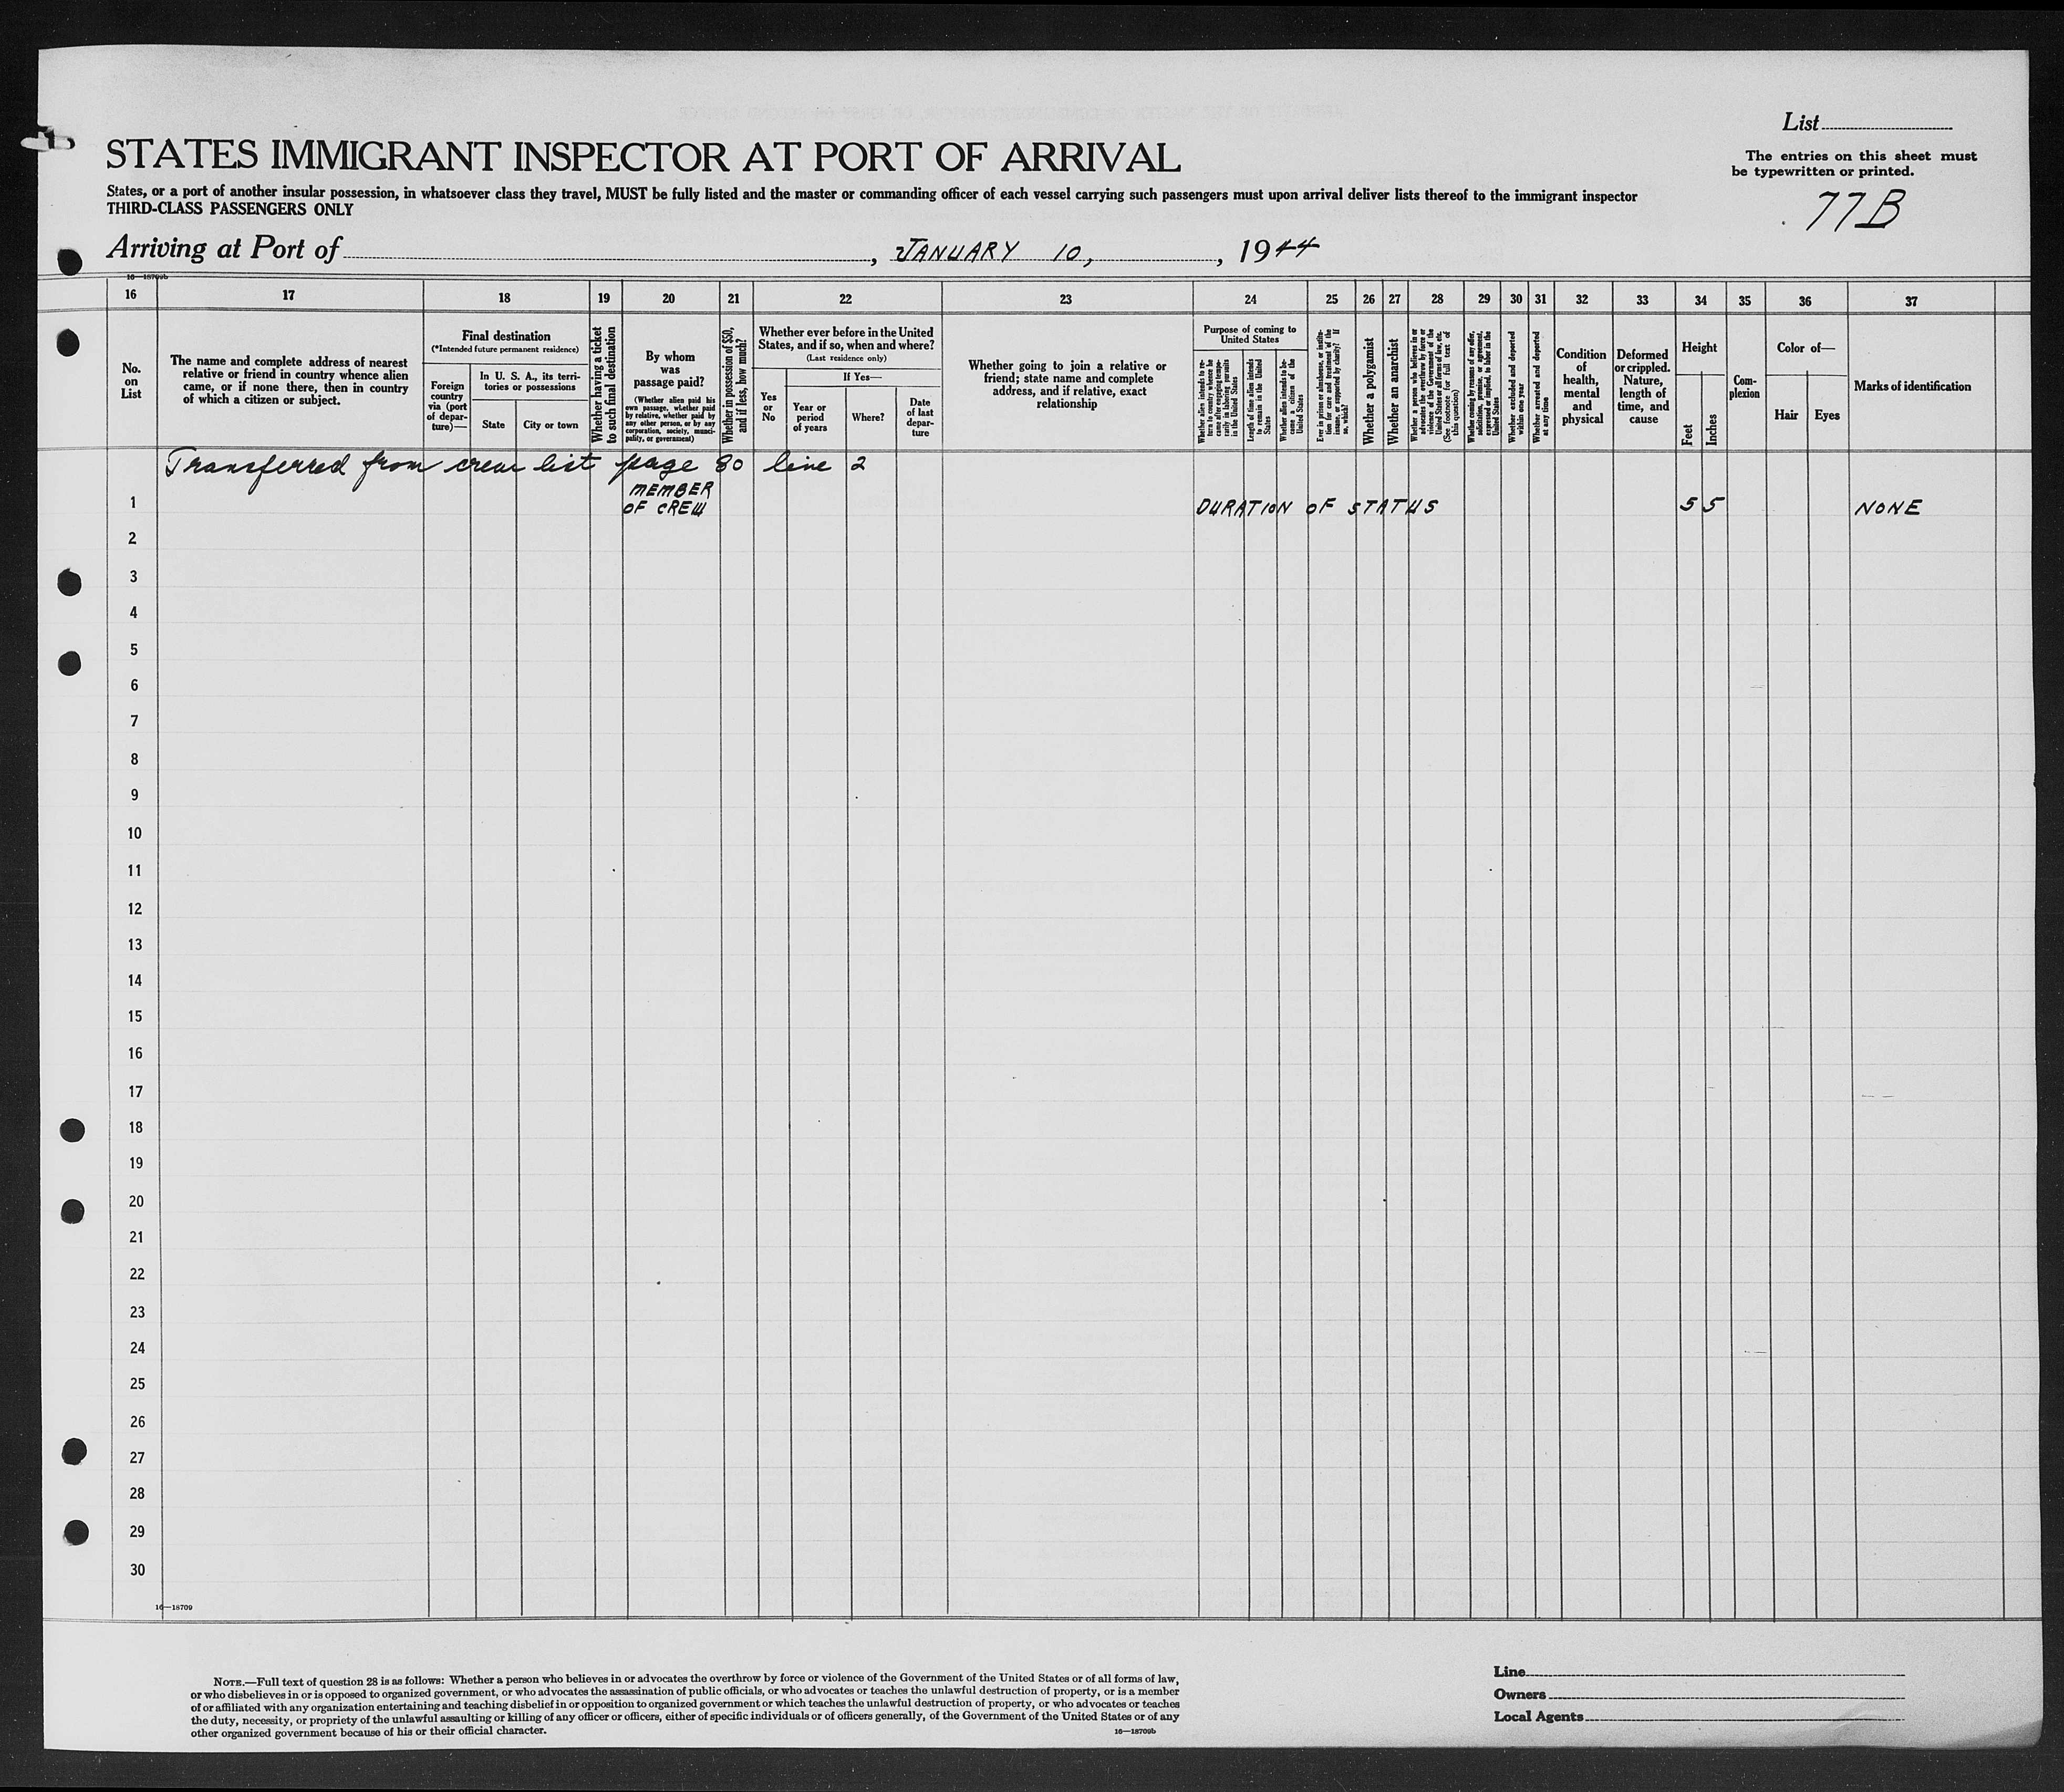 List
STATES IMMIGRANT INSPECTOR AT PORT OF ARRIVAL
The entries on this sheet must
be typewritten or printed.
States, or a port of another insular possession, in whatsoever class they travel, MUST be fully listed and the master or commanding officer of each vessel carrying such passengers must upon arrival deliver lists thereof to the immigrant inspector
THIRD-CLASS PASSENGERS ONLY
77B
Arriving at Port of , JANUARY 10, , 1944
16—18709b
16 17 18 19 20 21 22 23 24 25 26 27 28 29 30 31 32 33 34 35 36 37
No.
on
List
The name and complete address of nearest
relative or friend in country whence alien
came, or if none there, then in country
of which a citizen or subject.
Final destination
(*Intended future permanent residence)
Foreign
country
via (port
of depar-
ture)—
In U. S. A., its terri-
tories or possessions
State
City or town
Whether having a ticket
to such final destination
By whom
was
passage paid?
(Whether alien paid his
own passage, whether paid
by relative, whether paid by
any other person, or by any
corporation, society, munci-
pality, or government)
Whether in possession of $50,
and if less, how much?
Whether ever before in the United
States, and if so, when and where?
(Last residence only)
Yes
or
No
If Yes—
Year or
period
of years
Where?
Date
of last
depar-
ture
Whether going to join a relative or
friend; state name and complete
address, and if relative, exact
relationship
Purpose of coming to
United States
Whether alien intends to re-
turn to country whence he
came after engaging tempo-
rarily in laboring pursuits
in the United States
Length of time alien intends
to remain in the United
States
Whether alien intends to be-
come a citizen of the
United States
Ever in prison or almshouse, or institu-
tion for care and treatment of the
insane, or supported by charity? If
so, which?
Whether a polygamist
Whether an anarchist
Whether a person who believes in or
advocates the overthrow by force or
violence of the Government of the
United States or all forms of law, etc.
(See footnote for full text of
this question)
Whether coming by reasons of any offer,
solicitation, promise, or agreement,
expressed or implied, to labor in the
United States
Whether excluded and deported
within one year
Whether arrested and deported
at any time
Condition
of
health,
mental
and
physical
Deformed
or crippled.
Nature,
length of
time, and
cause
Height
Feet
Inches
Com-
plexion
Color of—
Hair
Eyes
Marks of identification
Transferred from crew list page 80 line 2
MEMBER
1 OF CREW DURATION OF STATUS 5 5 NONE
2
3
4
5
6
7
8
9
10
11
12
13
14
15
16
17
18
19
20
21
22
23
24
25
26
27
28
29
30
16—18709
NOTE.—Full text of question 28 is as follows: Whether a person who believes in or advocates the overthrow by force or violence of the Government of the United States or of all forms of law,
or who disbelieves in or is opposed to organized government, or who advocates the assassination of public officials, or who advocates or teaches the unlawful destruction of property, or is a member
of or affiliated with any organization entertaining and teaching disbelief in or opposition to organized government or which teaches the unlawful destruction of property, or who advocates or teaches
the duty, necessity, or propriety of the unlawful assaulting or killing of any officer or officers, either of specific individuals or of officers generally, of the Government of the United States or of any
other organized government because of his or their official character.
16—18709b
Line
Owners
Local Agents